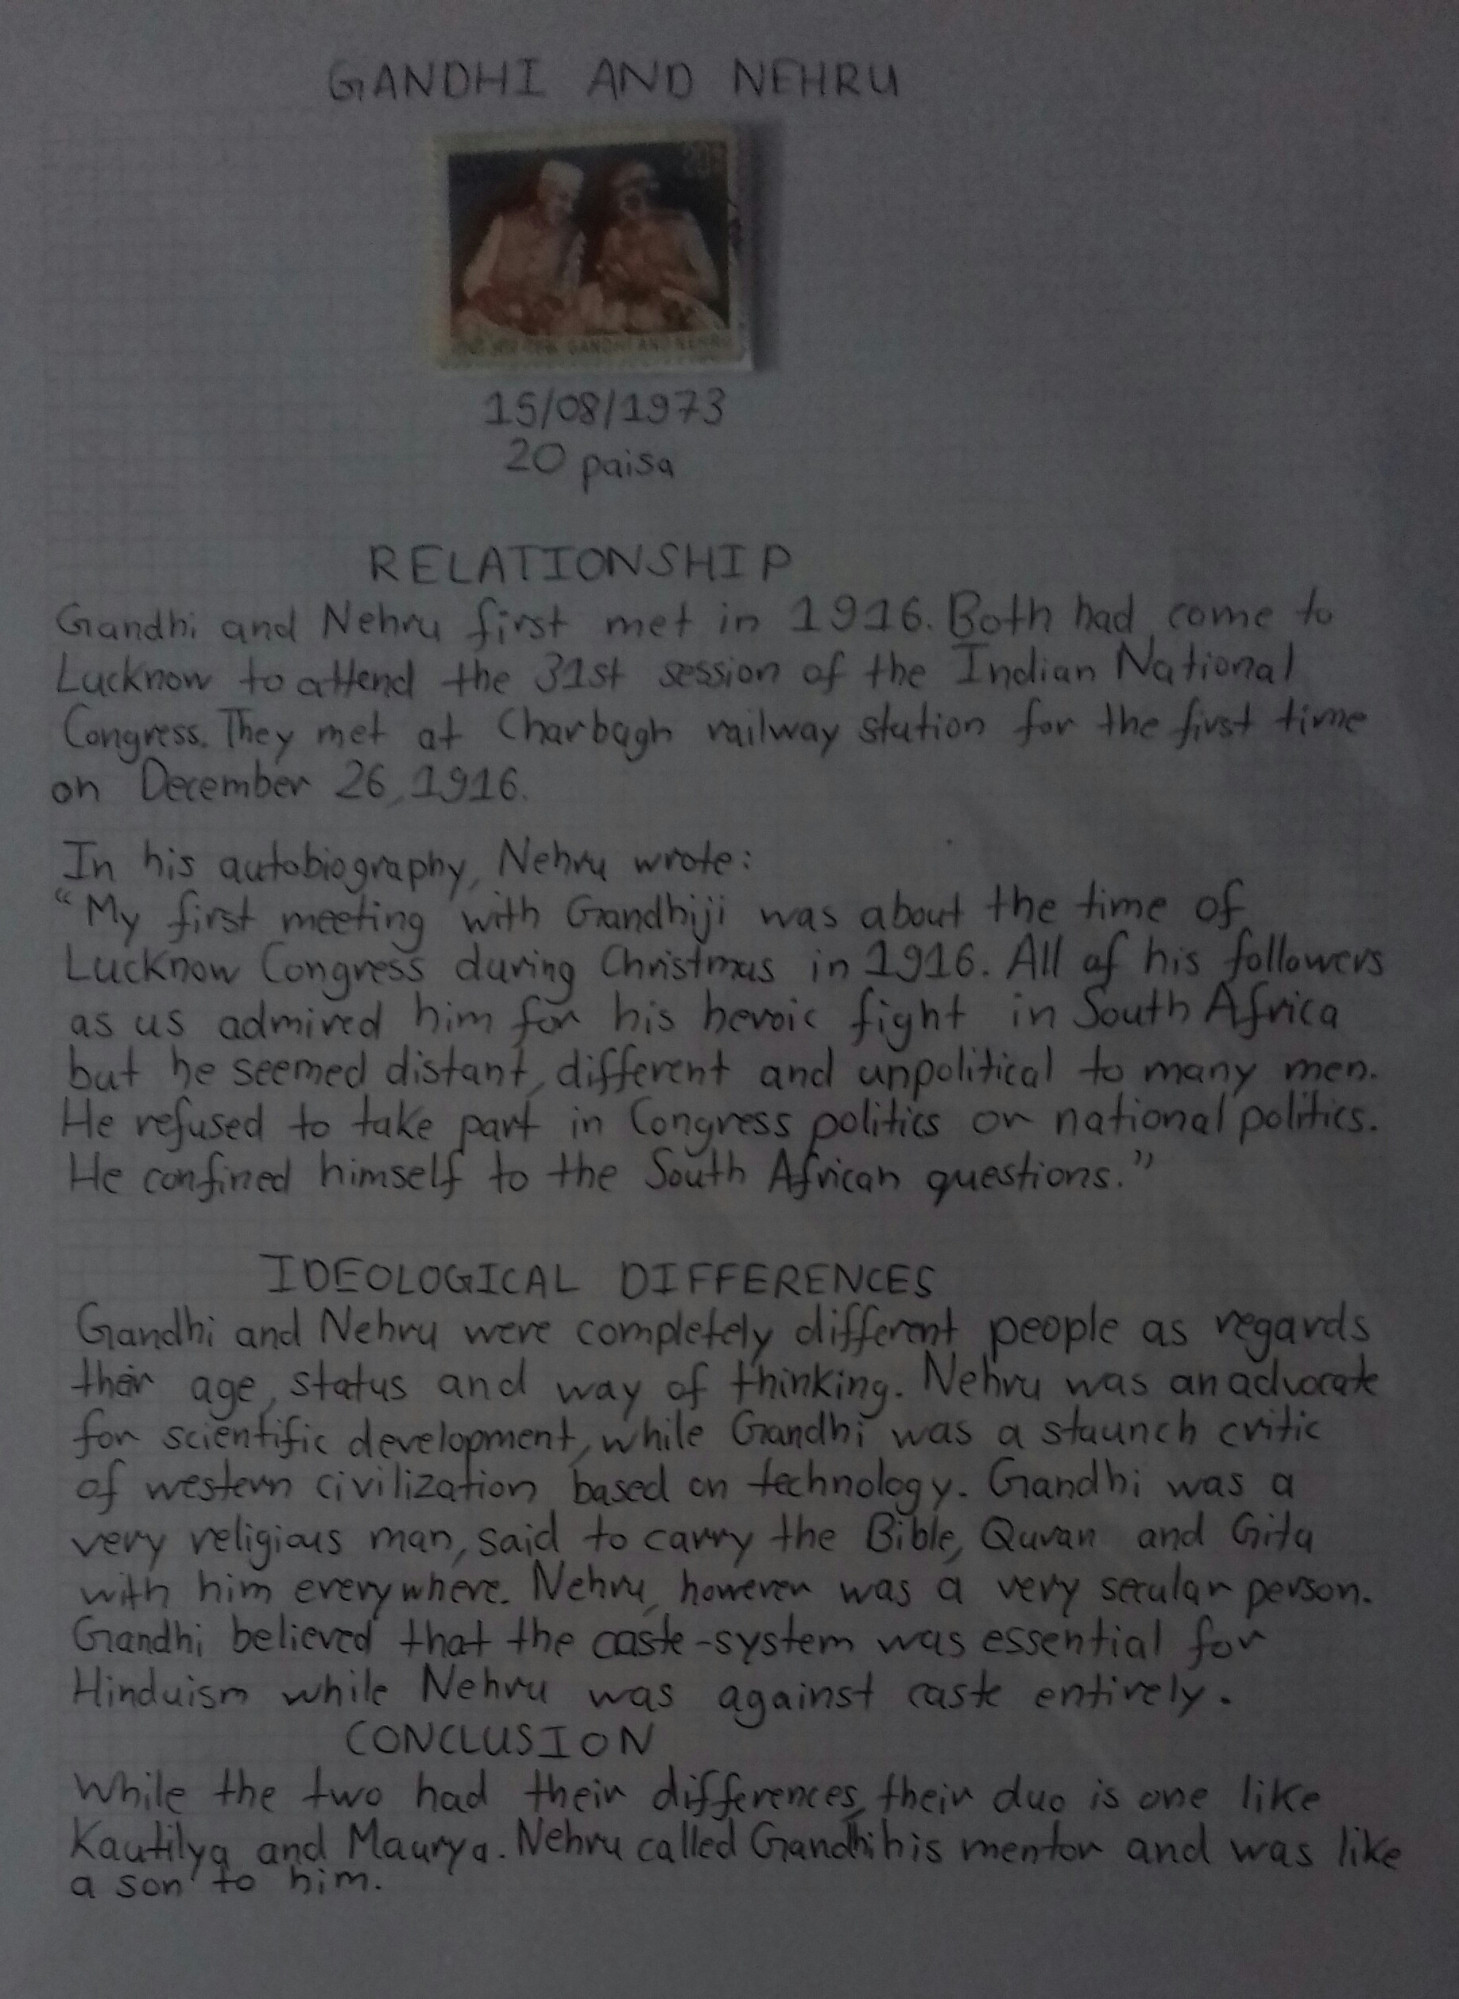 GANDHI AND NEHRU
GANDHI AND NEHRU
15/08/1973
20 paisa
RELATIONSHIP
Gandhi and Nehru first met in 1916. Both had come to
Lucknow to attend the 31st session of the Indian National
Congress. They met at Charbagh railway station for the first time
on December 26, 1916.
In his autobiography, Nehru wrote:
"My first meeting with Gandhiji was about the time of
Lucknow Congress during Christmas in 1916. All of his followers
as us admired him for his heroic fight in South Africa
but he seemed distant, different and unpolitical to many men.
He refused to take part in Congress politics or national politics.
He confined himself to the South African questions."
IDEOLOGICAL DIFFERENCES
Gandhi and Nehru were completely different people as regards
their age, status and way of thinking. Nehru was an advocate
for scientific development, while Gandhi was a staunch critic
of western civilization based on technology. Gandhi was a
very religious man, said to carry the Bible, Quran and Gita
with him everywhere. Nehru, however was a very secular person.
Gandhi believed that the caste-system was essential for
Hinduism while Nehru was against caste entirely.
CONCLUSION
While the two had their differences, their duo is one like
Kautilya and Maurya. Nehru called Gandhi his mentor and was like
a son to him.